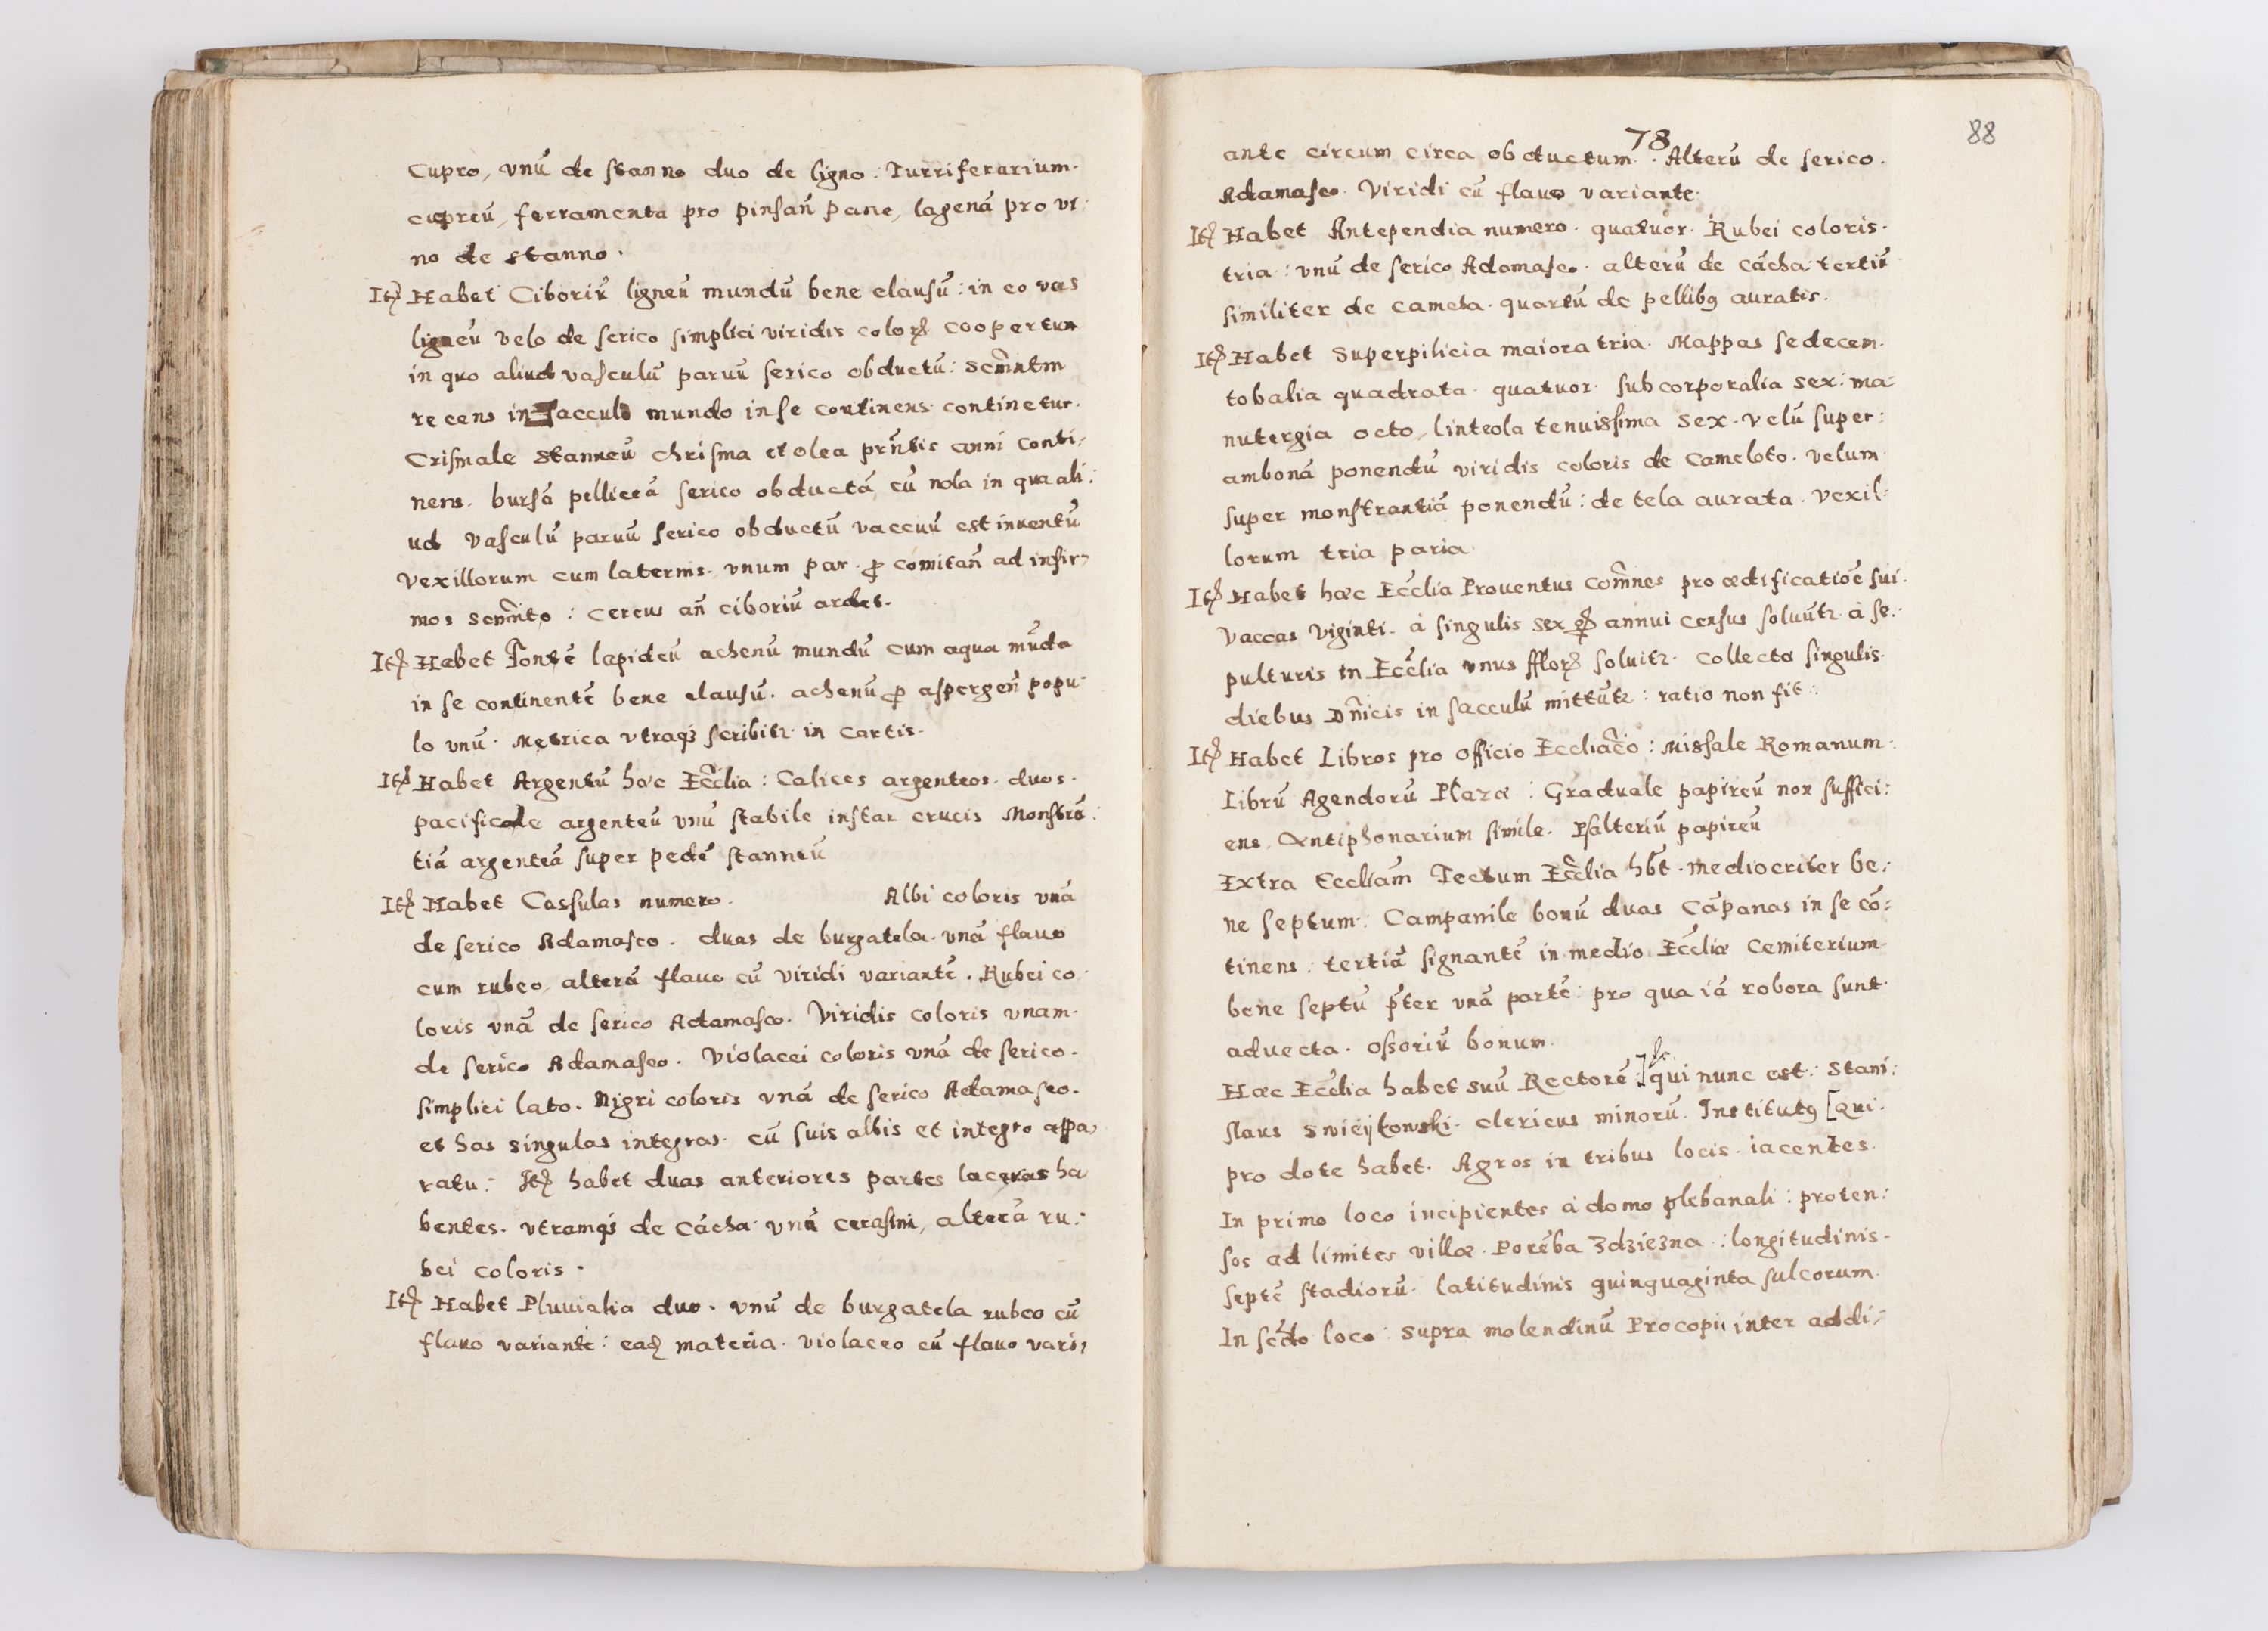 Cupro, vnũ de stanno duo de ligno: Turriferarium.
cupreũ, ferramenta pro pinsañ pane, lagenã pro vi:
no de stanno.
Itẽ Habet Ciboriũ ligneũ mundũ bene clausũ: in eo vas
ligneũ velo de serico simplici viridis colorꝭ coopertum
in quo aliud vasculũ paruũ serico obductũ: Scm̃ntm
recens in sacculo mundo inse continens continetur.
Crismale stanneũ chrisma et olea prñtis anni conti:
nens. bursã pelliceã serico obductã cũ nola in qua ali:
ud vasculũ paruũ serico obductũ vaccuũ est inuentũ
vexillorum cum laternis. vnum par. ꝓ comitañ ad infir:
mos scm̃nto: Cereus añ ciboriũ ardet.
Itẽ Habet Fontẽ lapideũ achenũ mundũ cum aqua mũda
in se continentẽ bene clausũ. achenũ ꝓ aspergeñ popu:
lo vnũ. Metrica vtraqꝫ scribitꝛ in cartis.
Itẽ Habet Argentũ hæc Eccl̃ia: Calices argenteos. duos.
pacificale argenteũ vnũ stabile instar crucis Monstrã:
tiã argenteã super pedẽ stanneũ
Itẽ Habet Cassulas numero. Albi coloris vnã
de serico Adamasco. duas de burgatela. vnã flauo
cum rubeo, alterã flauo cũ viridi variantẽ. Rubei co:
loris vnã de serico Adamasco. Viridis coloris vnam.
de serico Adamasco. Violacei coloris vnã de serico.
simplici lato. Nigri coloris vnã de serico Adamasco.
et has singulas integras. cũ suis albis et integro appa:
ratu: Itẽ habet duas anteriores partes laceras ha
bentes. vtramqꝫ de Cãcha vnã cerasini, alterã ru:
bei coloris.
Itẽ Habet Pluuialia duo. vnũ de burgatela rubeo cũ
flauo variante: eadꝫ materia. violaceo cũ flauo vari:
88
78
ante circum circa obductum. Alterũ de serico.
Adamasco. Viridi cũ flauo variante.
Itẽ Habet Antependia numero. quatuor. Rubei coloris.
tria: vnũ de serico Adamasco. alterũ de cãcha tertiũ
similiter de camcha. quartũ de pellibꝰ auratis.
Itẽ Habet Superpilicia maiora tria. Mappas sedecem.
tobalia quadrata. quatuor. subcorporalia sex: ma:
nutergia octo, linteola tenuissima sex. velũ super:
ambonã ponendũ viridis coloris de Cameloto. velum
super monstrantiã ponendũ: de tela aurata. vexil:
lorum tria paria.
Itẽ Habet hæc Eccl̃ia Prouentus com̃nes pro ædificatiõe sui.
Vaccas Viginti. à singulis sex annui census soluũtꝛ à se:
pulturis in Eccl̃ia vnus fflorꝭ soluitꝛ. Collecta singulis.
diebus Dñicis in sacculũ mittũtꝛ: ratio non fit:
Itẽ Habet Libros pro officio Eccliac̃o: Missale Romanum.
Librũ Agendorũ Plaza: Graduale papireũ non suffici:
ens. Antiphonarium simile. Psalteriũ papireũ
Extra Eccliãm Tectum Eccl̃ia hb̃t. mediocriter be:
ne septum: Campanile bonũ duas Cãpanas in se cõ:
tinens: tertiã signantẽ in medio Eccl̃iæ Cemiterium.
bene septũ p̃ter vnã partẽ: pro qua iã robora sunt.
aduecta. ossoriũ bonum.
Hæc Eccl̃ia habet suũ Rectorẽ: qui nunc est: Stani:
slaus Swiéÿkowski. clericus minorũ. Institutꝰ [qui.
pro dote habet. Agros in tribus locis. iacentes.
In primo loco incipientes à domo plebanali: proten:
sos ad limites villæ. Porẽba Zdziezna: longitudinis.
septẽ stadiorũ. latitudinis quinquaginta sulcorum.
In scd̃o loco: supra molendinũ Procopii inter addi: